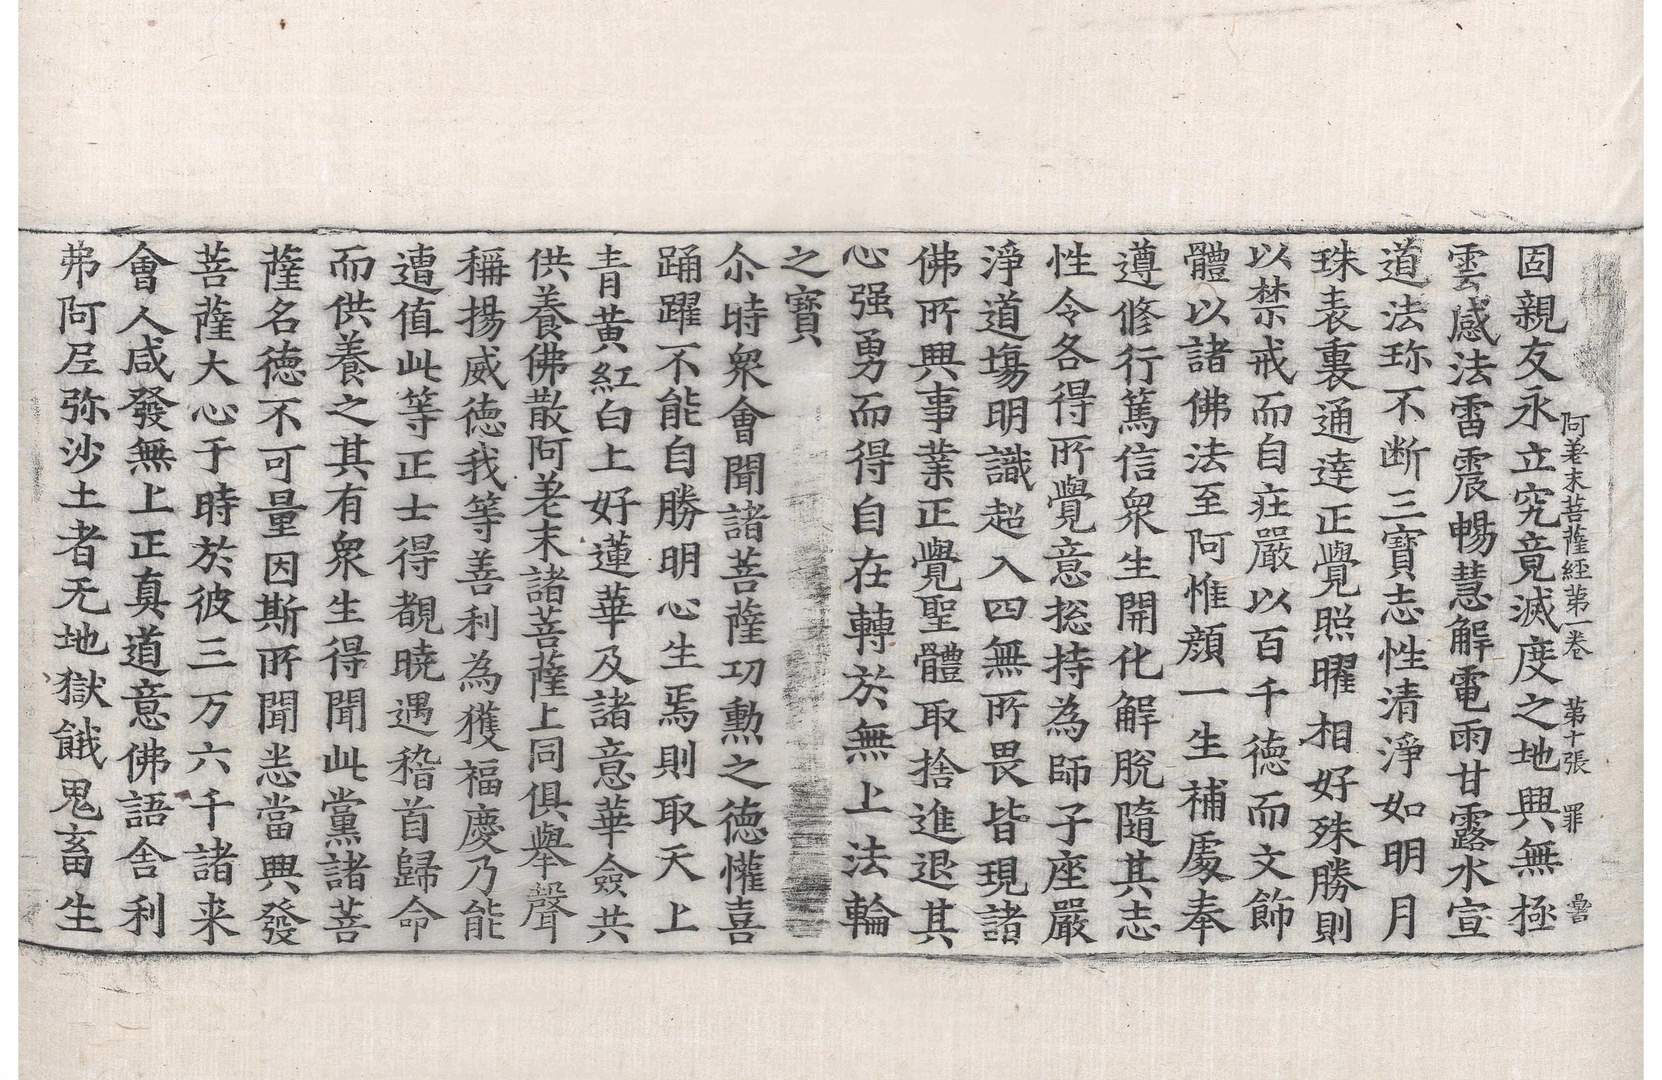 阿差末菩薩經第一卷　第十張　罪
固親友永立究竟滅度之地興無極
雲感法雷震暢慧解電雨甘露水宣
道法珎不断三寶志性清淨如明月
珠表裏通達正覺照曜相好殊勝則
以禁戒而自莊嚴以百千德而文飾
體以諸佛法至阿惟顔一生補處奉
遵修行篤信衆生開化解脫隨其志
性令各得所覺意捴持為師子座嚴
淨道場明識超入四無所畏皆現諸
佛所興事業正覺聖體取捨進退其
心强勇而得自在轉於無上法輪
之寶
尒時衆會聞諸菩薩功勳之德懽喜
踊躍不能自勝明心生焉則取天上
青黄紅白上好蓮華及諸意華僉共
供養佛散阿差末諸菩薩上同俱舉聲
稱揚威德我等善利為獲福慶乃能
遭值此等正士得覩曉遇稽首歸命
而供養之其有衆生得聞此黨諸菩
薩名德不可量因斯所聞恙當興發
菩薩大心于時於彼三万六千諸来
會人咸發無上正真道意佛語舍利
弗阿𡰱弥沙土者无地獄餓鬼畜生